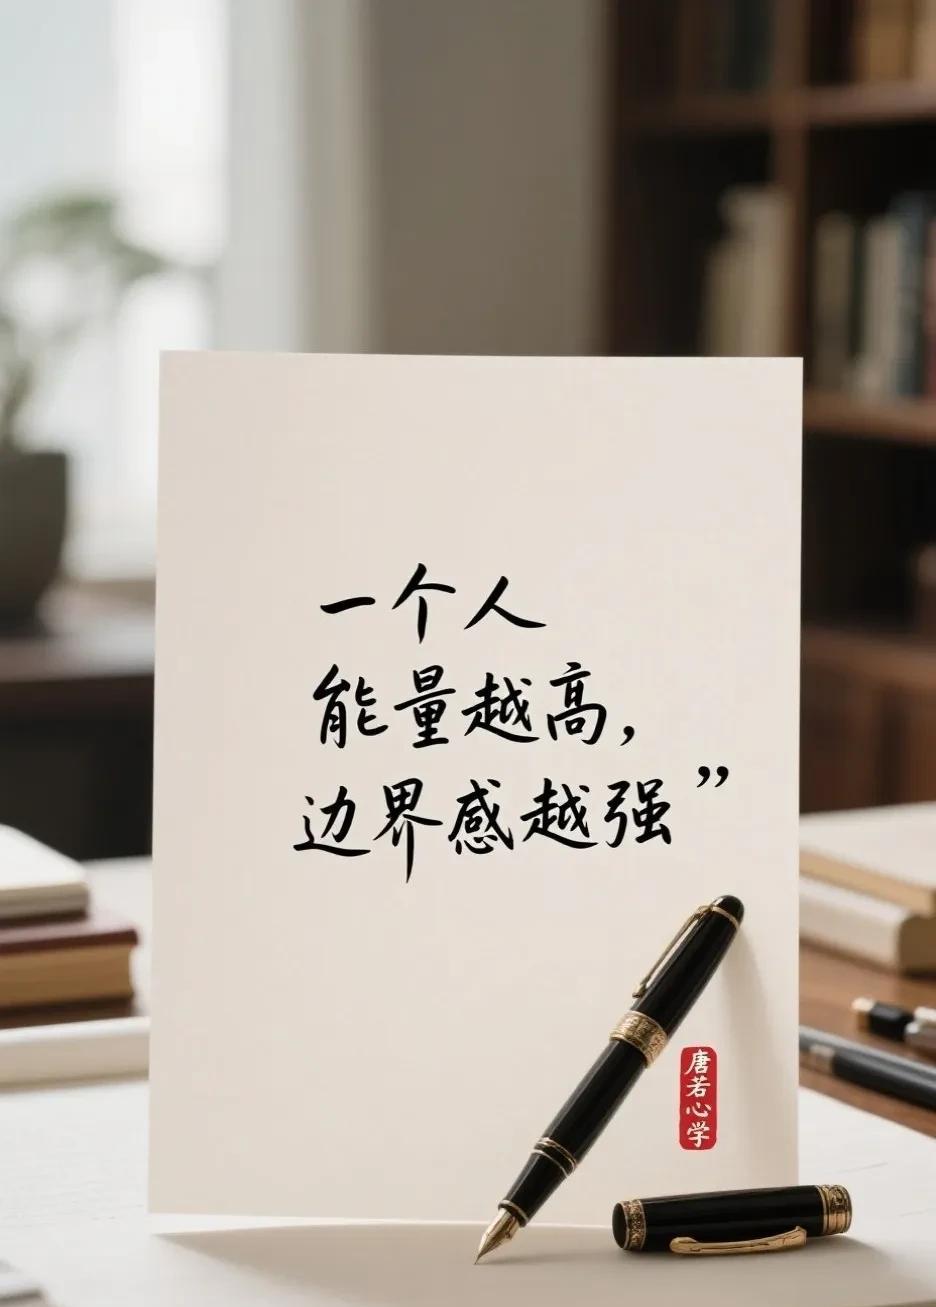 一个人
能量越高，
边界感越强”
唐若心学